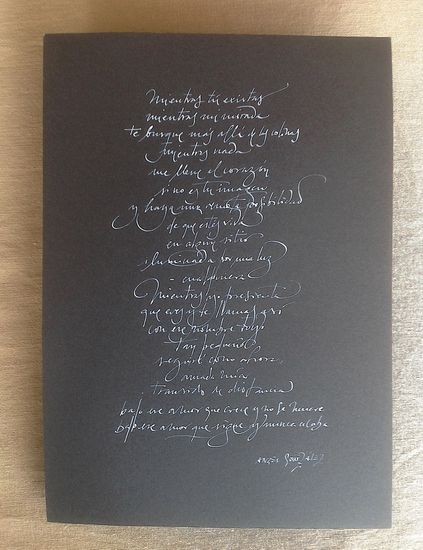 Mientras tú existas
mientras mi mirada
te busque mas allá de las colinas
mientras nada
me llene el corazón
si no es tu imagen
y haya una remota posibilidad
de que estés viva
en algún sitio
iluminada por una luz
- cualquiera
Mientras yo presienta
que eres y te llamas así
con ese nombre tuyo
tan pequeño
seguiré como ahora
amada mia
transido de distancia
bajo ese amor que crece y no se muere
bajo ese amor que sigue y nunca acaba
Angel González